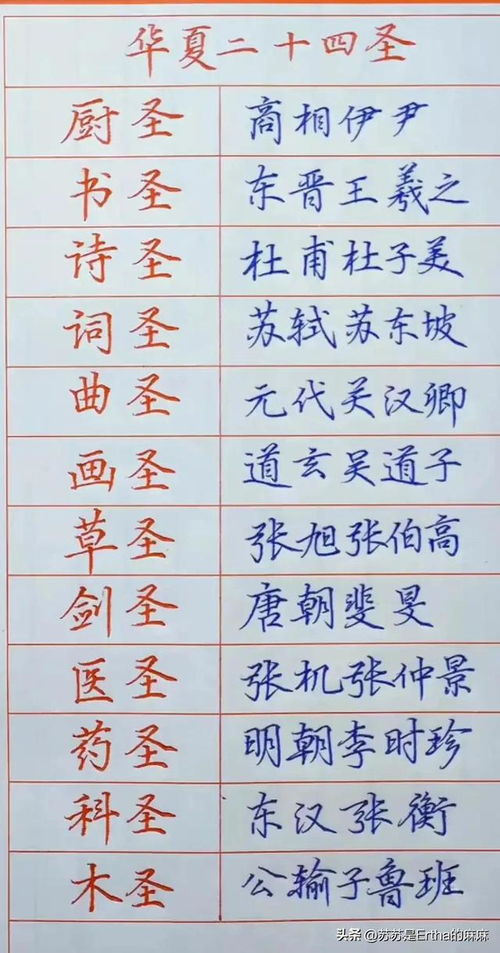 华夏二十四圣
厨圣 商相伊尹
书圣 东晋王羲之
诗圣 杜甫杜子美
词圣 苏轼苏东坡
曲圣 元代关汉卿
画圣 道玄吴道子
草圣 张旭张伯高
剑圣 唐朝斐旻
医圣 张机张仲景
药圣 明朝李时珍
科圣 东汉张衡
木圣 公输子鲁班
头条 @苏苏是Ertha的麻麻